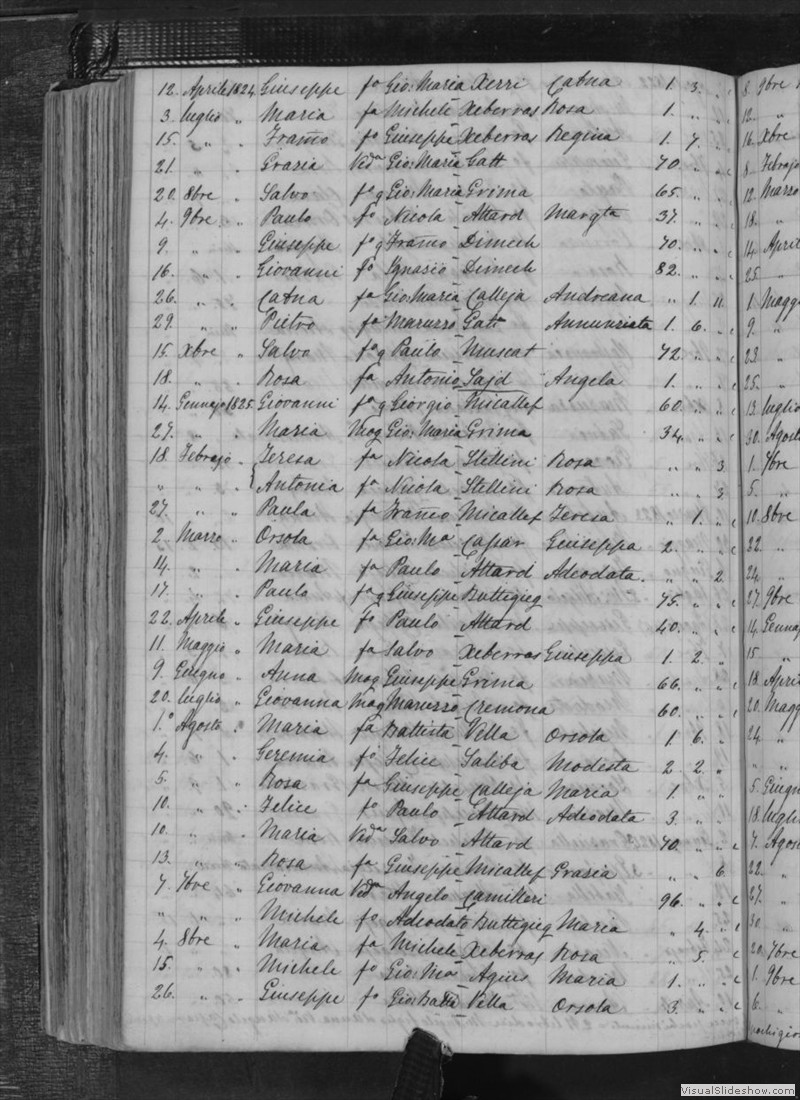 12. Aprile 1824 Giuseppe fo Gio: Maria Xerri Catna 1. 3. „
3. luglio „ Maria fa Michele Xeberras Rosa 1. „ „
15. „ „ Franco fo Giuseppe Xeberras Regina 1. 7. „
21. „ „ Grazia Veda Gio: Maria Catt 70. „ „
20. 8bre „ Salvo fo g Gio: Maria Grima 65. „ „
4. 9bre „ Paulo fo Nicola Attard Margta 37. „ „
9. „ „ Giuseppe fo g Franco Dimech 70. „ „
16. „ „ Giovanni fo Ignazio Dimech 82. „ „
26. „ „ Catna fa Gio: Maria Calleja Andreana „ 1. 11.
29. „ „ Pietro fo Maruzzo Gatt Annunziata 1. 6. „
15. Xbre „ Salvo fo g Paulo Muscat 72. „ „
18. „ „ Rosa fa Antonio Sajd Angela 1. „ „
14. Gennajo 1825. Giovanni fo g Giorgio Micallef 60. „ „
27. „ „ Maria Mog Gio: Maria Grima 34. „ „
18. Febrajo „ Teresa fa Nicola Stellini Rosa „ „ 3.
„ „ „ Antonia fa Nicola Stellini Rosa „ „ 3
27. „ „ Paula fa Franco Micallef Teresa „ 1. „
2. Marzo „ Orsola fa Gio: Ma Caspar Giuseppa 2. „ „
14. „ „ Maria fa Paulo Attard Adeodata. „ „ 2
17. „ „ Paulo fo g Giuseppe Buttegieg 75. „ „
22. Aprile „ Giuseppe fo Paulo Attard 40. „ „
11. Maggio „ Maria fa Salvo Xeberras Giuseppa 1. 2. „
9. Giugno „ Anna Mog Giuseppe Grima 66. „ „
20. luglio „ Giovanna Mog Maruzzo Cremona 60. „ „
1.o Agosto „ Maria fa Battista Vella Orsola 1. 6. „
4. „ „ Geremia fo Felice Saliba Modesta 2. 2. „
5. „ „ Rosa fa Giuseppe Calleja Maria 1 „ „
10. „ „ Felice fo Paulo Attard Adeodata 3. „ „
10. „ „ Maria Veda Salvo Attard 70. „ „
13. „ „ Rosa fa Giuseppe Micallef Grazia „ „ 6.
7. 7bre „ Giovanna Veda Angelo Camilleri 96. „ „
„ „ „ Michele fo Adeodato Buttegieg Maria „ 4. „
4. 8bre „ Maria fa Michele Xeberras Rosa „ 5. „
15. „ „ Michele fo Gio: Ma Agius Maria 1. „ „
26. „ „ Giuseppe fo Gio: Batta Vella Orsola 3. „ „
8. 9bre
12. „
16. Xbre
8. Febrajo
12. Marzo
18. „
14. April
25. „
1. Magg
9. „
23. „
25. „
13. luglio
30. Agost
1. 7bre
5. „
10. 8bre
22. „
24. „
27. 9bre
14. Genna
15. „
18. April
20. Magg
24. „
„ „
5. Giugn
18. luglio
7. Agosto
22. „
27. „
30 „
20. 7bre
1. 9bre
6. „
VisualSlideshow.com